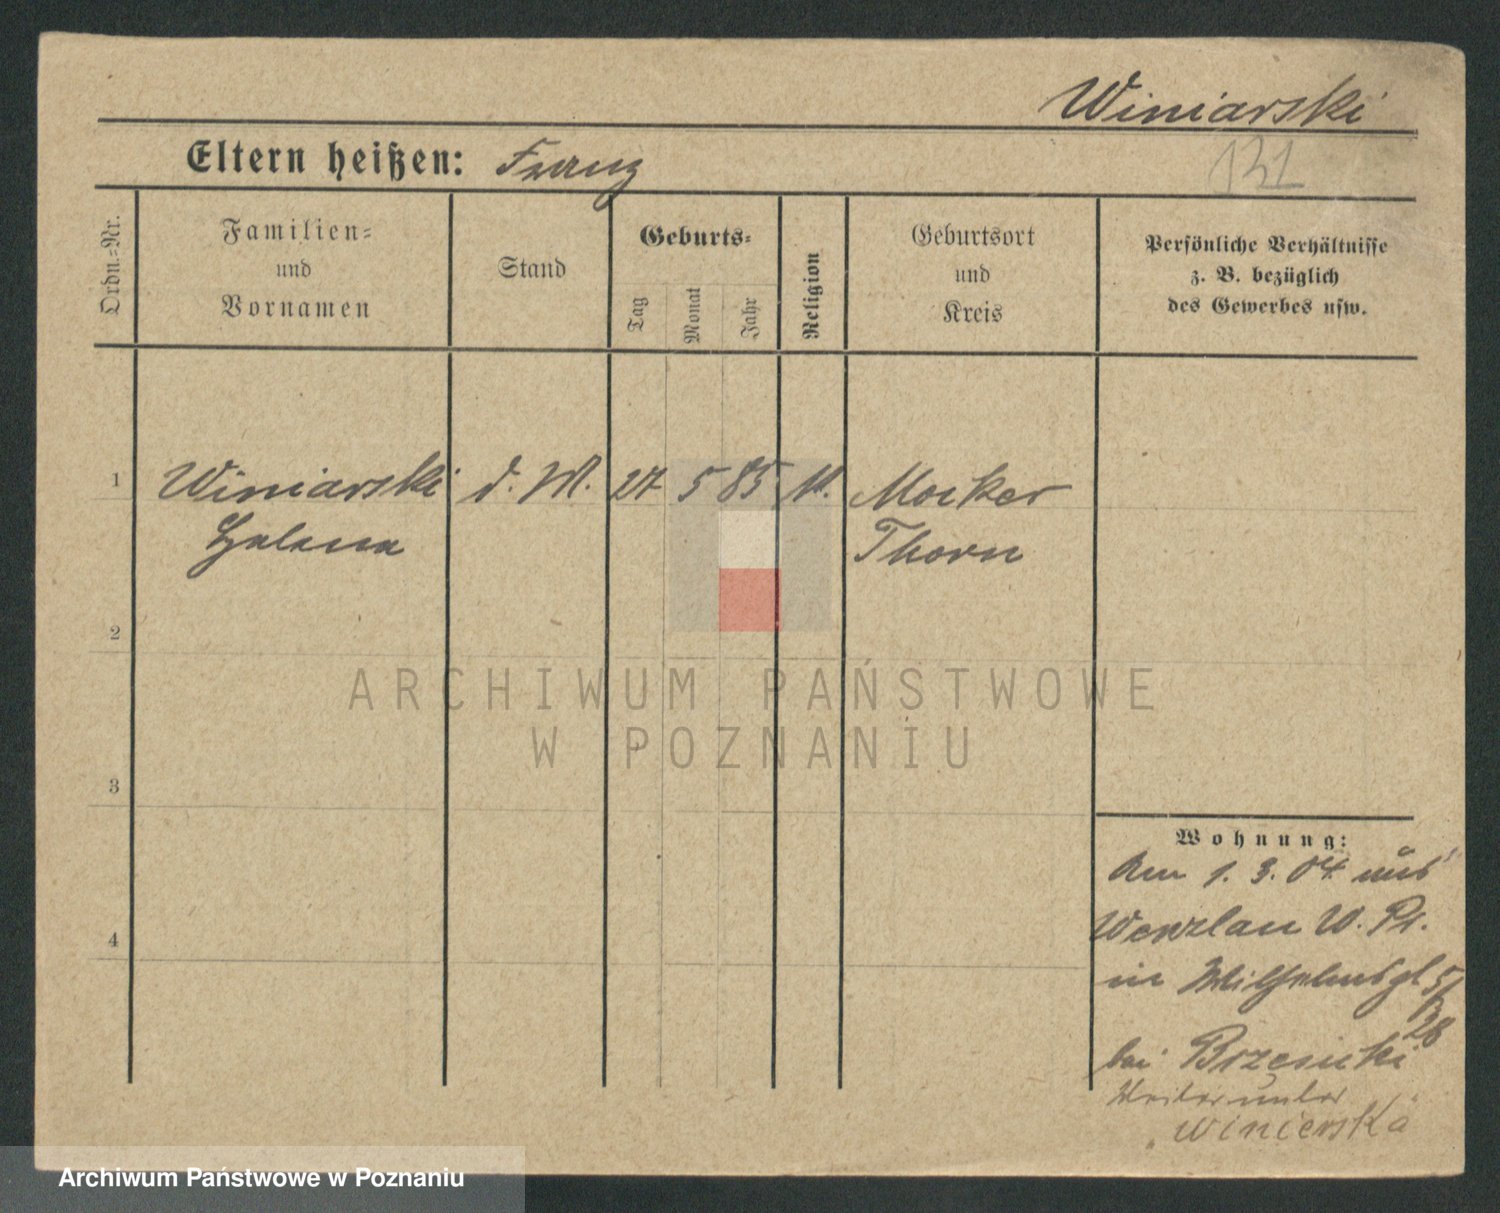 Winiarski
131
Eltern heißen: Franz
Ordn.-Nr.
Familien-
und
Vornamen
Stand
Geburts-
Tag
Monat
Jahr
Religion
Geburtsort
und
Kreis
Persönliche Verhältnisse
z. B. bezüglich
des Gewerbes usw.
1 Winiarski d. M. 27 5 85 Mocker
Helena Thorn
2
ARCHIWUM PAŃSTWOWE
W POZNANIU
3
4
Wohnung:
Am 1. 3. 04 aus
W. Pr.
in
28
bei
Weiter unter
"Winierska"
Archiwum Państwowe w Poznaniu